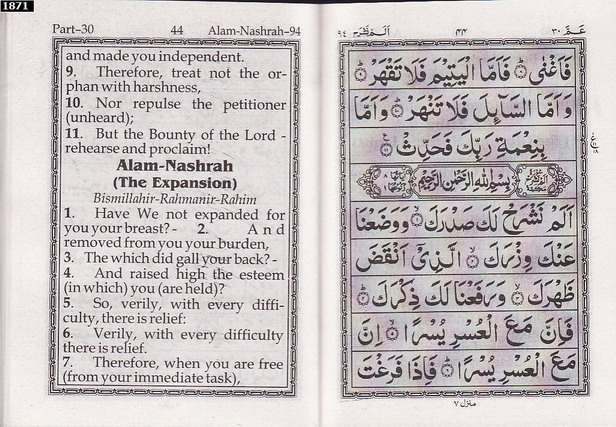 1871
Part-30 44 Alam-Nashrah-94
and made you independent.
9. Therefore, treat not the or-
phan with harshness,
10. Nor repulse the petitioner
(unheard);
11. But the Bounty of the Lord -
rehearse and proclaim!
Alam-Nashrah
(The Expansion)
Bismillahir-Rahmanir-Rahim
1. Have We not expanded for
you your breast? - 2. And
removed from you your burden,
3. The which did gall your back? -
4. And raised high the esteem
(in which) you (are held)?
5. So, verily, with every diffi-
culty, there is relief:
6. Verily, with every difficulty
there is relief.
7. Therefore, when you are free
(from your immediate task),
عَمَّ ٣٠ ٤٤ اَلَمْ نَشْرَحْ ٩٤
فَاَغْنٰى ۝ فَاَمَّا الْيَتِيْمَ فَلَا تَقْهَرْ ۝
وَاَمَّا السَّآئِلَ فَلَا تَنْهَرْ ۝ وَاَمَّا
بِنِعْمَةِ رَبِّكَ فَحَدِّثْ ۝
بِسْمِ اللّٰهِ الرَّحْمٰنِ الرَّحِيْمِ
اَلَمْ نَشْرَحْ لَكَ صَدْرَكَ ۝ وَوَضَعْنَا
عَنْكَ وِزْرَكَ ۝ الَّذِيْٓ اَنْقَضَ
ظَهْرَكَ ۝ وَرَفَعْنَا لَكَ ذِكْرَكَ ۝
فَاِنَّ مَعَ الْعُسْرِ يُسْرًا ۝ اِنَّ
مَعَ الْعُسْرِ يُسْرًا ۝ فَاِذَا فَرَغْتَ
منزل ٧